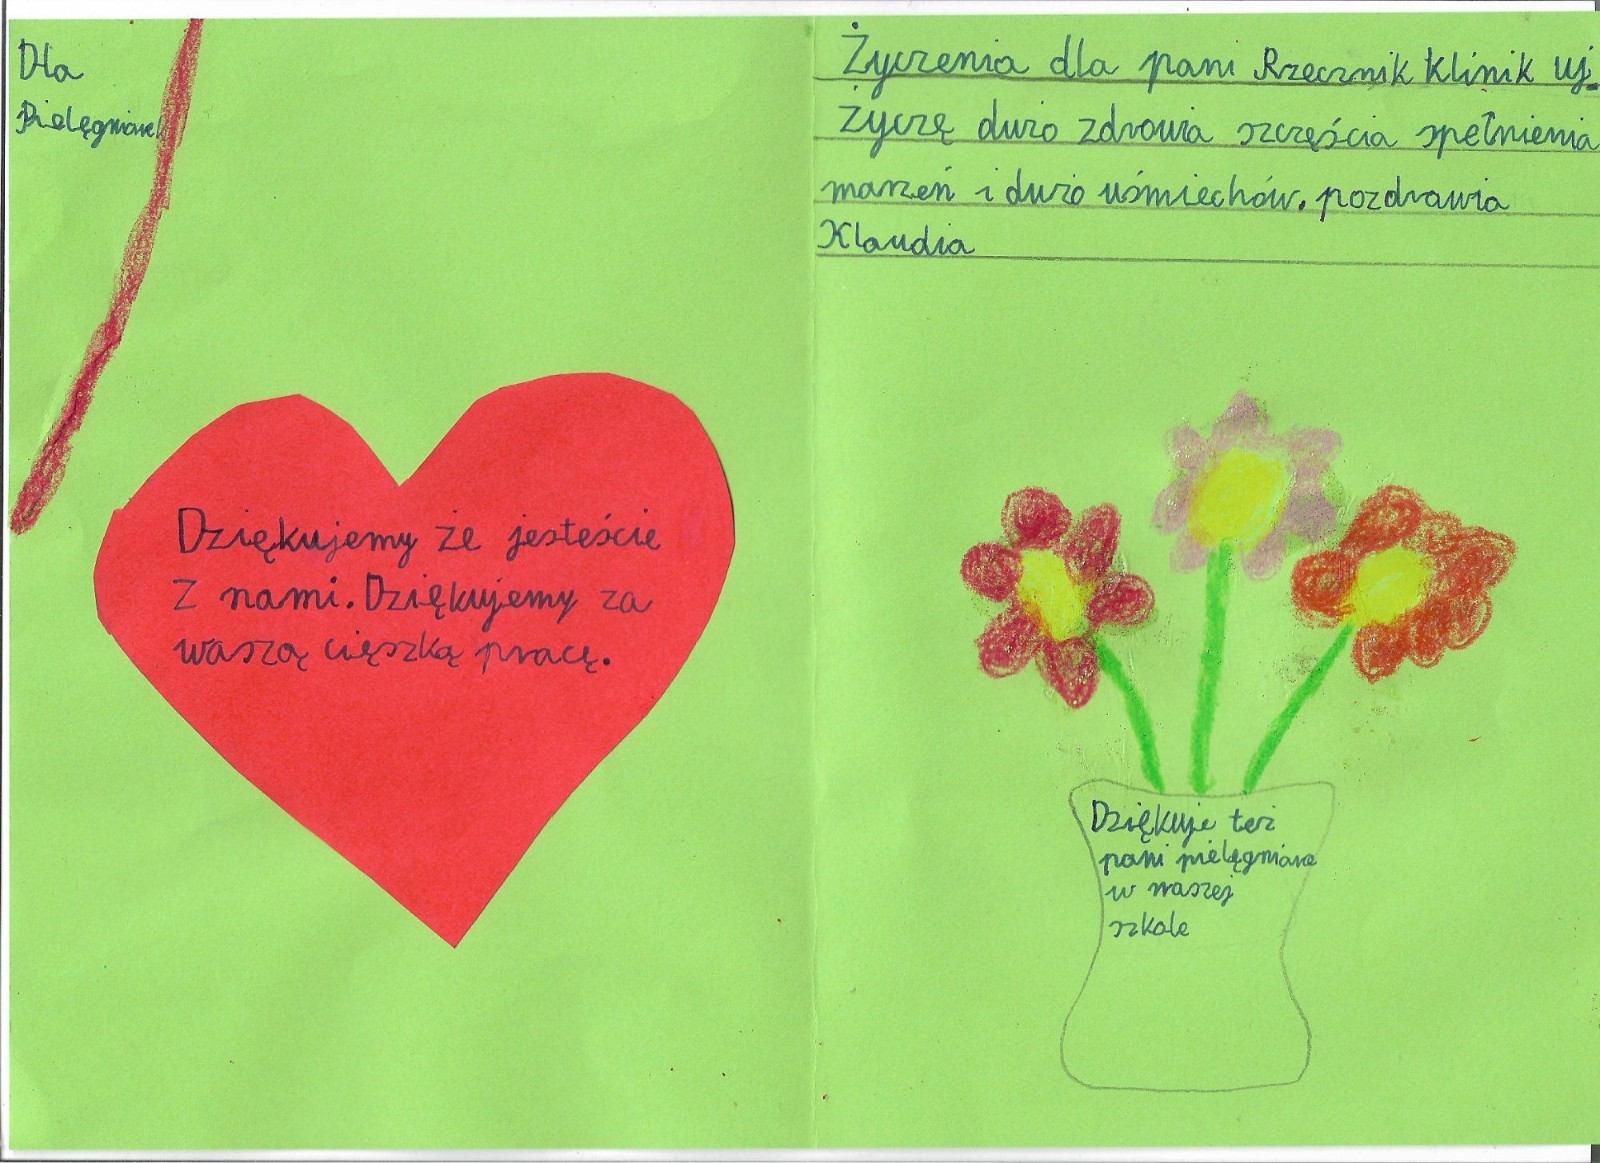 Dla
Pielęgniarek
Dziękujemy że jesteście
z nami. Dziękujemy za
waszą cięszką pracę.
Życzenia dla pani Rzecznik Klinik uj.
Życzę dużo zdrowia szczęścia spełnienia
marzeń i dużo uśmiechów. pozdrawia
Klaudia
Dziękuje też
pani pielęgniarce
w naszej
szkole